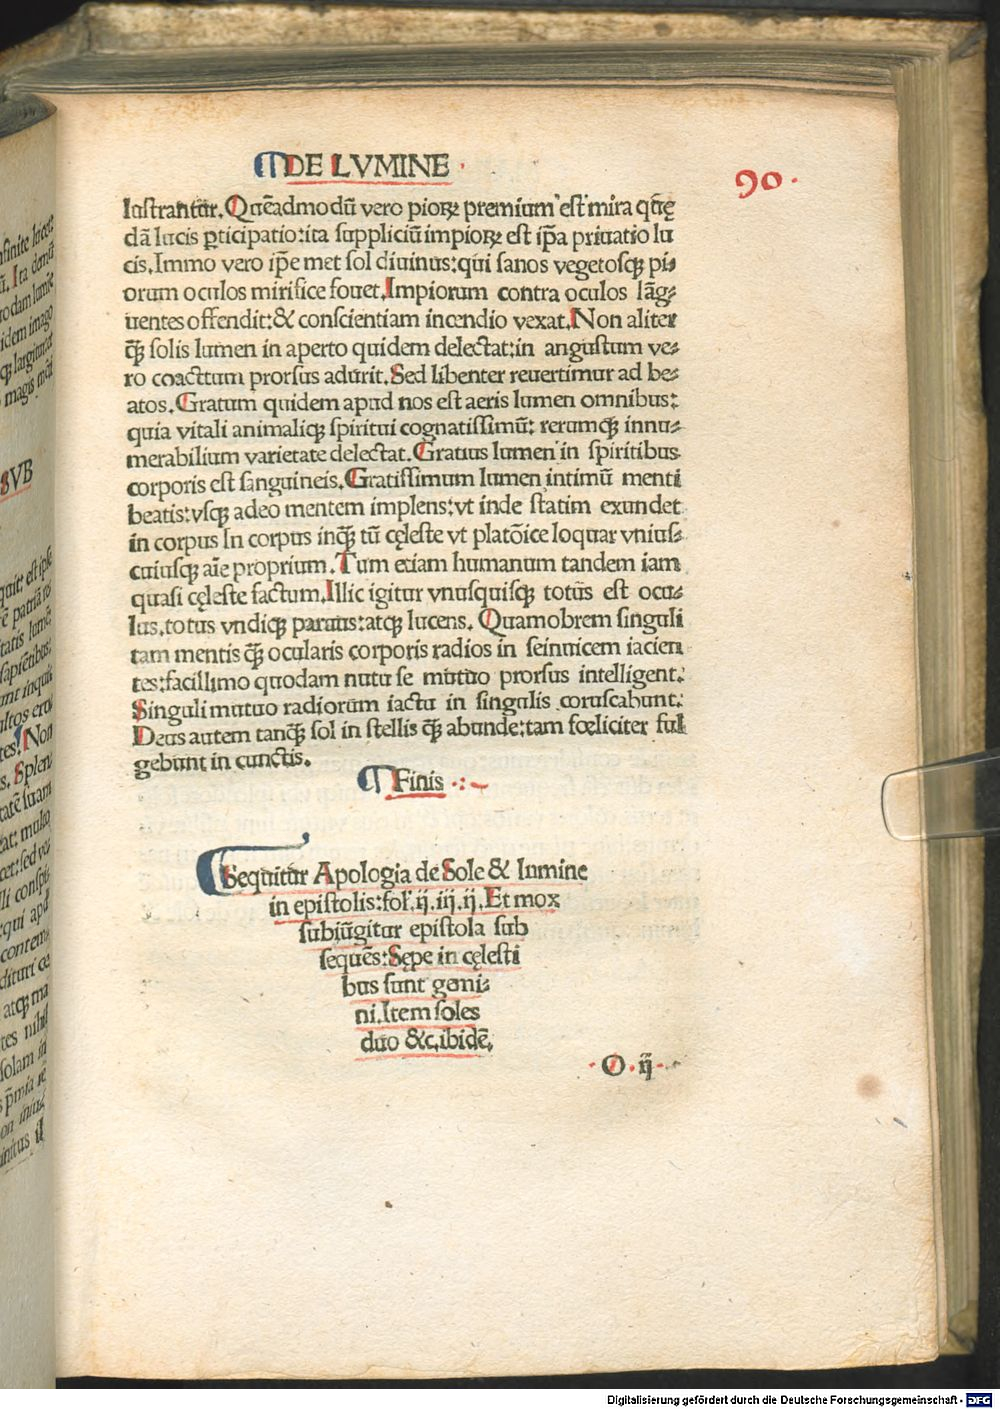 DE LVMINE
90.
lustrantur. Quēadmodū vero pioꝝ premium est mira quę
dā lucis ꝑticipatio:ita suppliciū impioꝝ est ip̄a priuatio lu
cis. Immo vero ip̄e met sol diuinus:qui sanos vegetosqꝫ pi⸗
orum oculos mirifice fouet. Impiorum contra oculos lāg⸗
uentes offendit:& conscientiam incendio vexat. Non aliter
qꝫ̄ solis lumen in aperto quidem delectat:in angustum ve⸗
ro coacttum prorsus adurit. Sed libenter reuertimur ad be⸗
atos. Gratum quidem apud nos est aeris lumen omnibus:
quia vitali animaliqꝫ spiritui cognatissimū: rerumqꝫ innu⸗
merabilium varietate delectat. Gratius lumen in spiritibus
corporis est sanguineis. Gratissimum lumen intimū menti
beatis:vsqꝫ adeo mentem implens:vt inde statim exundet
in corpus In corpus inqꝫ̄ tū cęleste vt platōice loquar vnius⸗
cuiusqꝫ aīe proprium. Tum etiam humanum tandem iam
quasi cęleste factum. Illic igitur vnusquisqꝫ totus est ocu⸗
lus. totus vndiqꝫ paratus:atqꝫ lucens. Quamobrem singuli
tam mentis qꝫ̄ ocularis corporis radios in seinuicem iacien
tes:facillimo quodam nutu se mutuo prorsus intelligent:
Singuli mutuo radiorum iactu in singulis coruscabunt:
Deus autem tanqꝫ̄ sol in stellis qꝫ̄ abunde:tam fœliciter ful
gebunt in cunctis.
Finis
Sequitur Apologia de Sole & lumine
in epistolis:fol. ij. iii. ij. Et mox
subiūgitur epistola sub
sequēs: Sępe in cęlesti
bus sunt gemi⸗
ni. Item soles
duo &c. ibidē.
O. ij
Digitalisierung gefördert durch die Deutsche Forschungsgemeinschaft - DFG